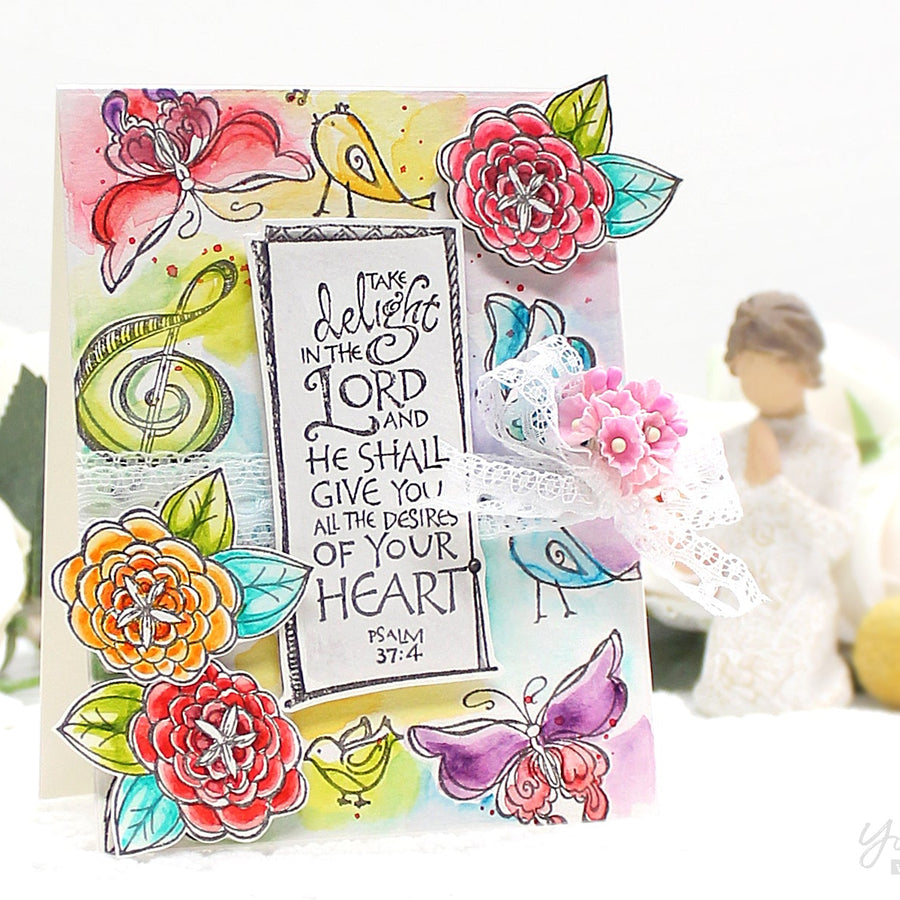 TAKE
delight
IN THE
LORD
AND
HE SHALL
GIVE YOU
ALL THE DESIRES
OF YOUR
HEART
PSALM
37:4